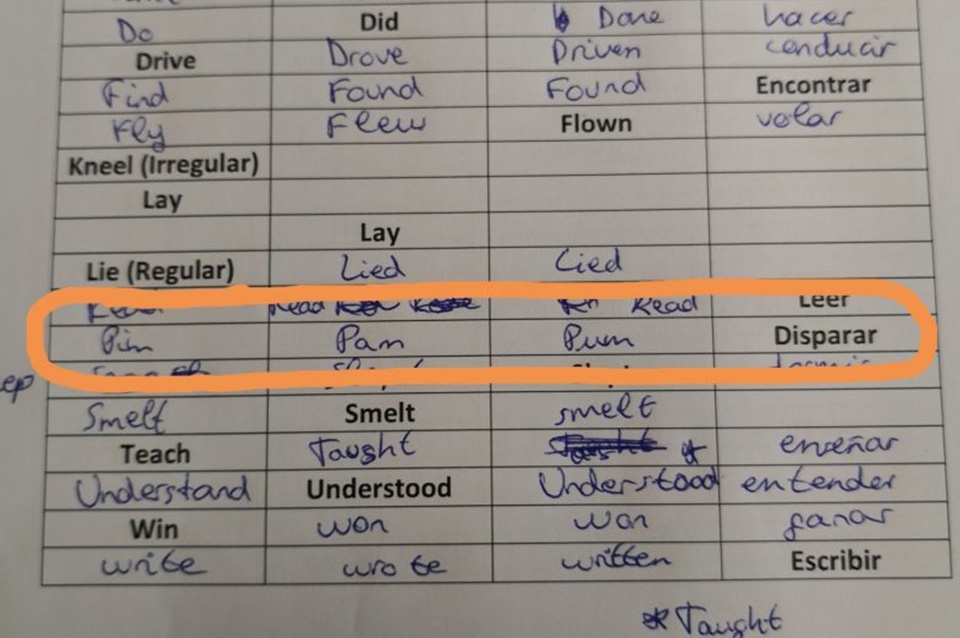 Do Did Done hacer
Drive Drove Driven conducir
Find Found Found Encontrar
Fly Flew Flown volar
Kneel (Irregular)
Lay
Lay
Lie (Regular) Lied Lied
Read Read Leer
Pim Pam Pum Disparar
ep
Smelt Smelt smelt
Teach Taught enseñar
Understand Understood Understood entender
Win won won ganar
write wrote written Escribir
* Taught